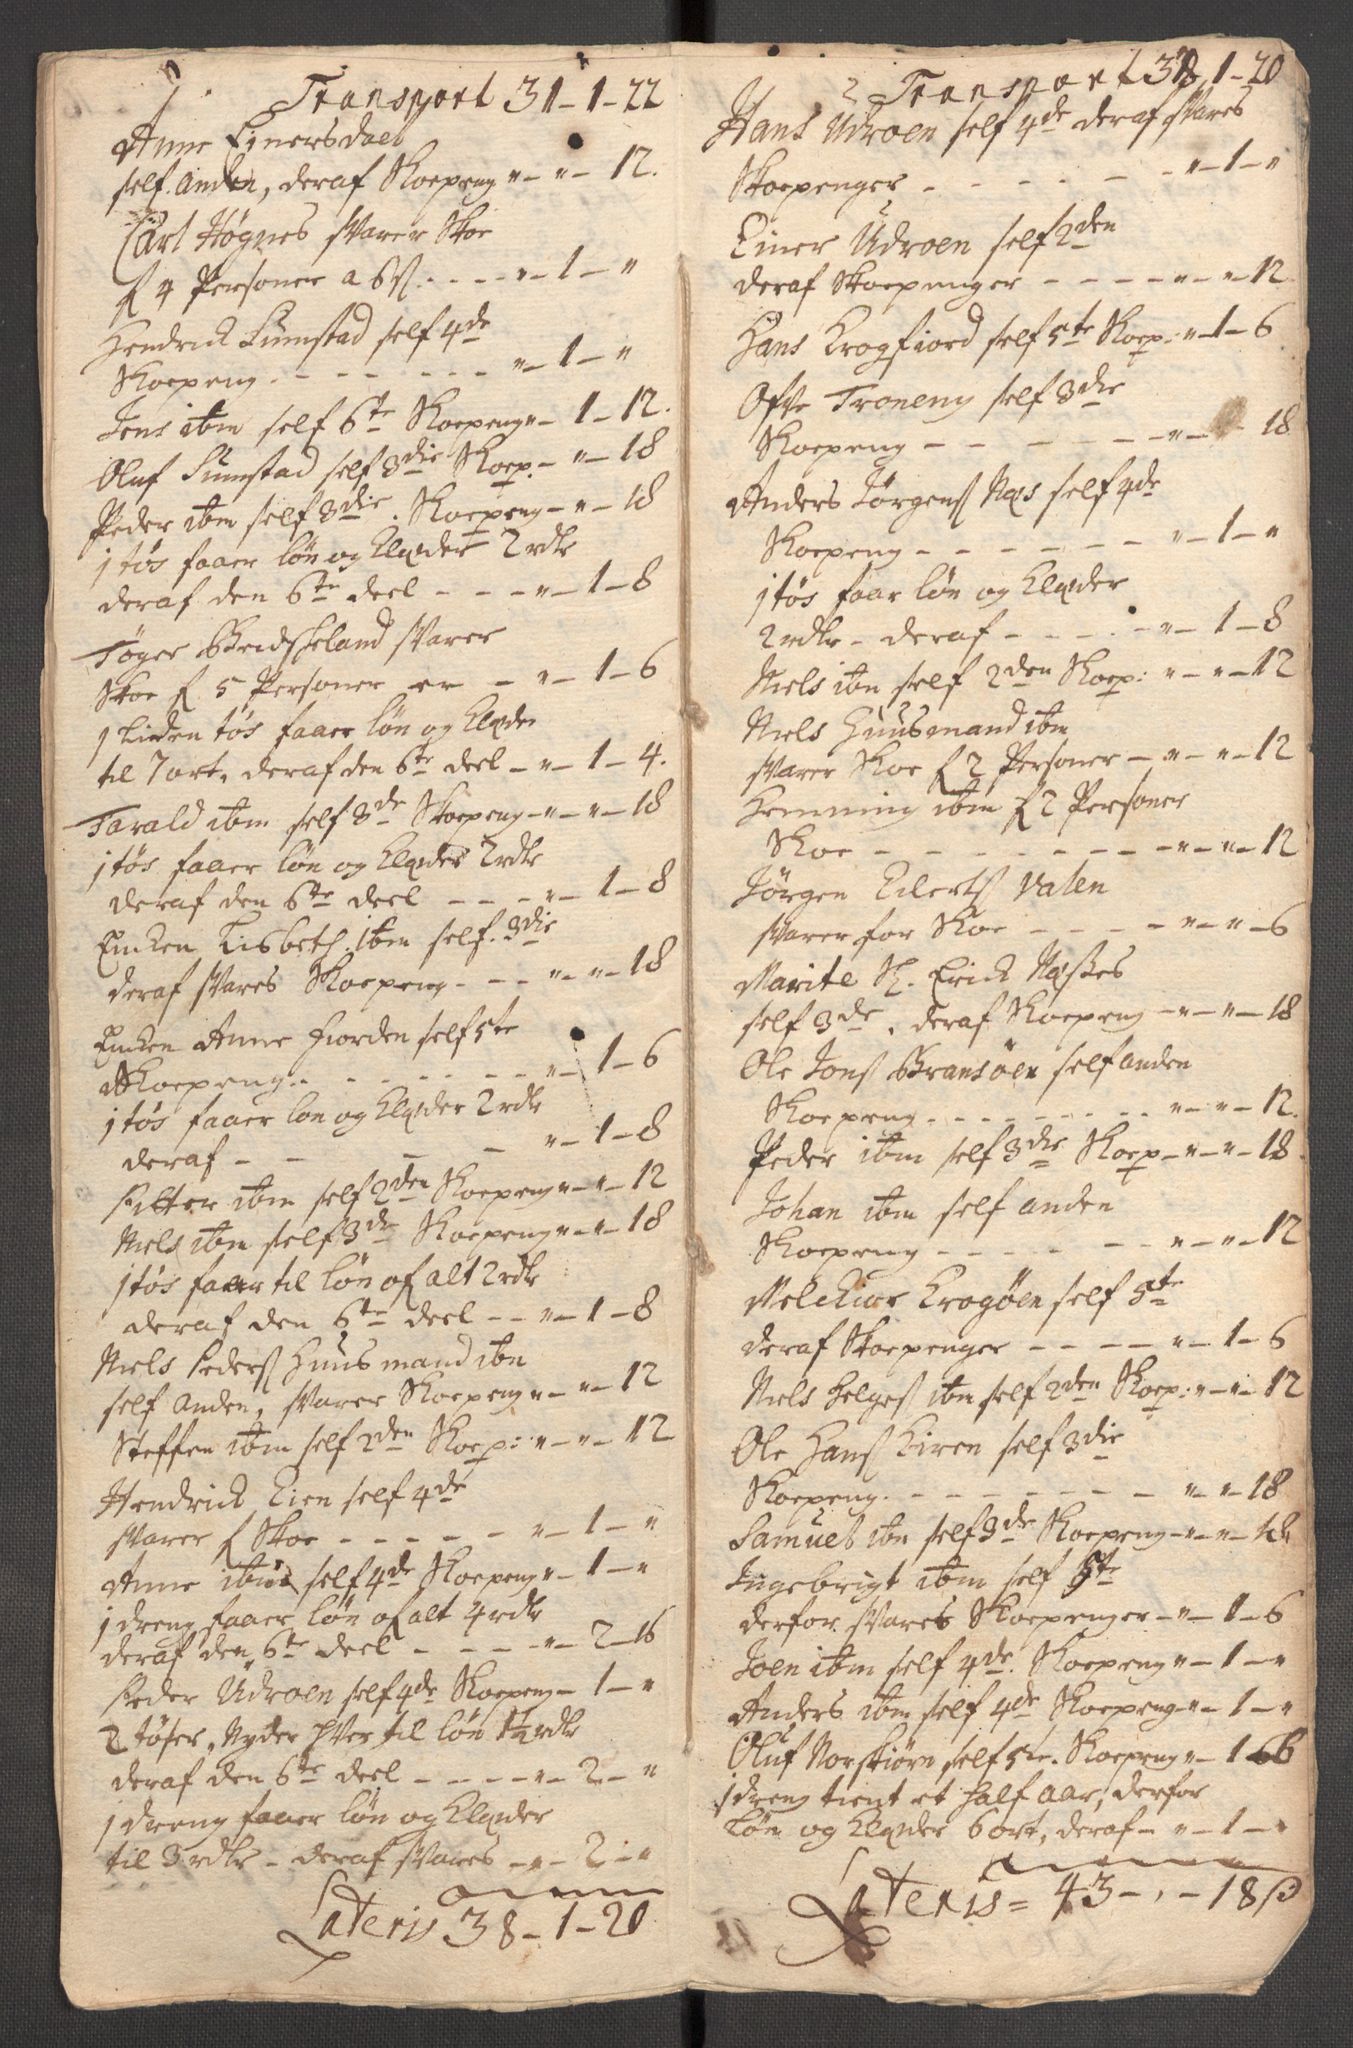 Transport 31-1-22
Anne Einersdael
self anden, deraf Skoepeng "-"-12.
Carl Høgnes svarer Skoe
f 4 Personer a 6 s. - - - "-1-"
Hendrich Sumstad self 4de
Skoepeng. - - - - - - "-1-"
Jens ibm self 6te Skoepeng "-1-12.
Oluf Sumstad self 3die Skoep. -"-18
Peder ibm self 3die. Skoepeng -"-18
1 tøs faaer løn og Klæder 2 rdlr
deraf den 6te deel - - - "-1-8
Tøger svarer
Skoe f 5 Personer er - "-1-6
1 Liden tøs faaer løn og Klæder
til 7 ort, deraf den 6te deel -"-1-4.
Tarald ibm self 3de Skoepeng -"-"-18
1 tøs faaer løn og Klæder 2 rdlr
deraf den 6te deel - - - "-1-8
Encken Lisbeth ibm self. 3die
deraf svares Skoepeng. - - "-"-18
Encken Anne Fiorden self 5te
Skoepeng. - - - - - - "-1-6
1 tøs faaer løn og Klæder 2 rdlr
deraf - - - - "-1-8
Petter ibm self 2den Skoepeng "-"-12
Niels ibm self 3die Skoepeng "-"-18
1 tøs faaer til løn af alt 2 rdlr
deraf den 6te deel - - "-1-8
Niels Peders Huusmand ibm
self anden, svarer Skoepeng "-"-12
Steffen ibm self 2den Skoep: "-"-12
Hendrich Lien self 4de
svarer f Skoe - - - - - "-1-"
Anne ibm self 4de Skoepeng "-1-"
1 dreng faaer løn af alt 4 rdlr
deraf den 6te deel - - - - "-2-16
Peder Udroen self 4de Skoepeng -1-"
2 tøser, Nyder hver til løn 1½ rdlr
deraf den 6te deel - - - - "-2-"
1 dreng faaer løn og Klæder
til 3 rdlr - deraf svares -"-2-"
Lateris 38-1-20
Transport 38,1-20
Hans Udroen self 4de deraf svares
Skoepenger - - - - - - "-1-"
Einer Udroen self 2den
deraf Skoepenger - - - - "-"-12
Hans Krogfiord self 5te Skoep: "-1-6
Ofve Troneng self 3die
Skoepeng - - - - - - "- -18
Anders Jørgens Næs self 4de
Skoepeng - - - - - - "-1-"
1 tøs faar løn og Klæder
2 rdlr - deraf - - - - -"-1-8
Niels ibm self 2den Skoep: "-"-12
Niels Huusmand ibm
svarer Skoe f 2 Personer -"-"-12
Hemming ibm f 2 Personer
Skoe - - - - - - - - "-"-12
Jørgen Eilerts Valen
svarer for Skoe - - - - "-"-6
Marite Sl. Erich Næsses
self 3de, deraf Skoepeng -"-"-18
Ole Jons Bransøen self anden
Skoepeng. - - - - - - - "-"-12.
Peder ibm self 3die Skoep -"-"-18
Johan ibm self anden
Skoepeng - - - - - - "-"-12
Melchior Krogøen self 5te
deraf Skoepenger - - - - "-1-6
Niels Helges ibm self 2den Skoep: "-"-12
Ole Hans Kiren self 3die
Skoepeng. - - - - - - - "-"-18
Samuel ibm self 3de Skoepeng -"-"-18
Ingebrigt ibm self 5te
derfor svares Skoepenger -"-1-6
Joen ibm self 4de. Skoepeng "-1-"
Anders ibm self 4de Skoepeng "-1-"
Oluf Norskiørn self 5te. Skoepeng "-1-6
1 dreng tient et half aar, derfor
Løn og Klæder 6 ort, deraf - "-1-"
Lateris = 43-,-18 s